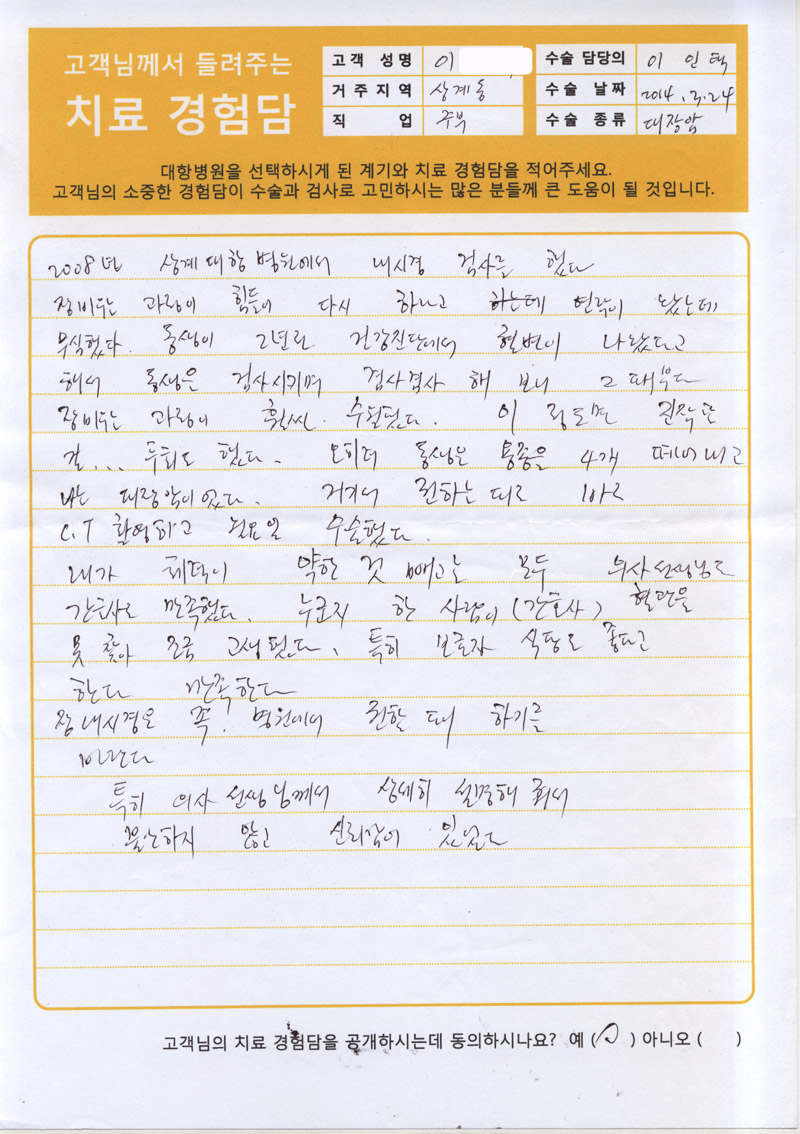 고객님께서 들려주는
치료 경험담
고객 성명 이
수술 담당의 이 인 택
거주지역 상계동
수술 날짜 2014. 3. 24
직 업 주부
수술 종류 대장암
대항병원을 선택하시게 된 계기와 치료 경험담을 적어주세요.
고객님의 소중한 경험담이 수술과 검사로 고민하시는 많은 분들께 큰 도움이 될 것입니다.
2008년 상계 대항 병원에서 내시경 검사를 했다
장 비우는 과정이 힘들어 다시 하라고 연락이 왔는데
무식했다. 동생이 2년만 건강진단에서 혈변이 나왔다고
해서 동생은 검사시키며 겸사겸사 해 보니 그 때보다
장비우는 과정이 훨씬 수월했다. 이 정도면 진작 할
걸... 후회도 했다. 동생은 용종을 4개 떼어내고
나는 대장암이었다. 거기서 권하는 대로 바로
C.T 촬영하고 월요일 수술했다.
내가 체력이 약한 것 빼고는 모두 의사선생님도
간호사도 만족했다. 누군지 한 사람이 (간호사) 혈관을
못 찾아 조금 고생했다. 특히 보호자 식당도 좋다고
한다 만족한다
장 내시경은 꼭! 병원에서 권할 때 하기를
바란다
특히 의사 선생님께서 상세히 설명해 줘서
불안하지 않고 신뢰감이 있었다
고객님의 치료 경험담을 공개하시는데 동의하시나요? 예 ( ) 아니오 ( )